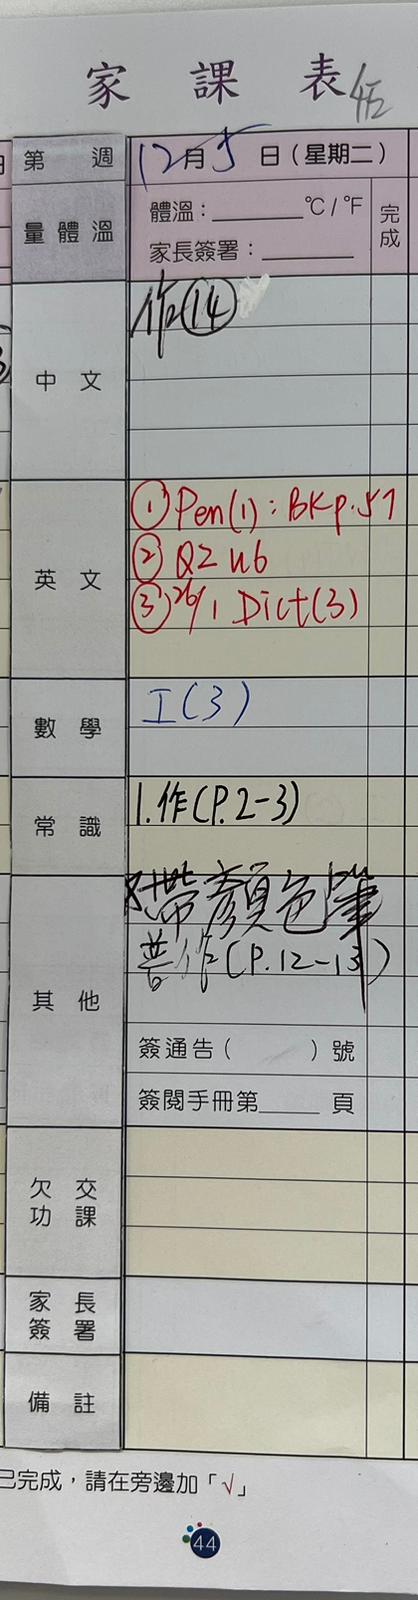 家課表
第 週 12月5日（星期二）
量體溫 體溫：________°C/°F 完成
家長簽署：________
中文 作⑭
英文 ①Pen(1): BK p.57
②Q2 u6
③26/1 Dict(3)
數學 I(3)
常識 1.作(P.2-3)
其他 帶顏色筆
普作(P.12-13)
簽通告（ ）號
簽閱手冊第_____頁
欠交功課
家長簽署
備註
已完成，請在旁邊加「√」
44